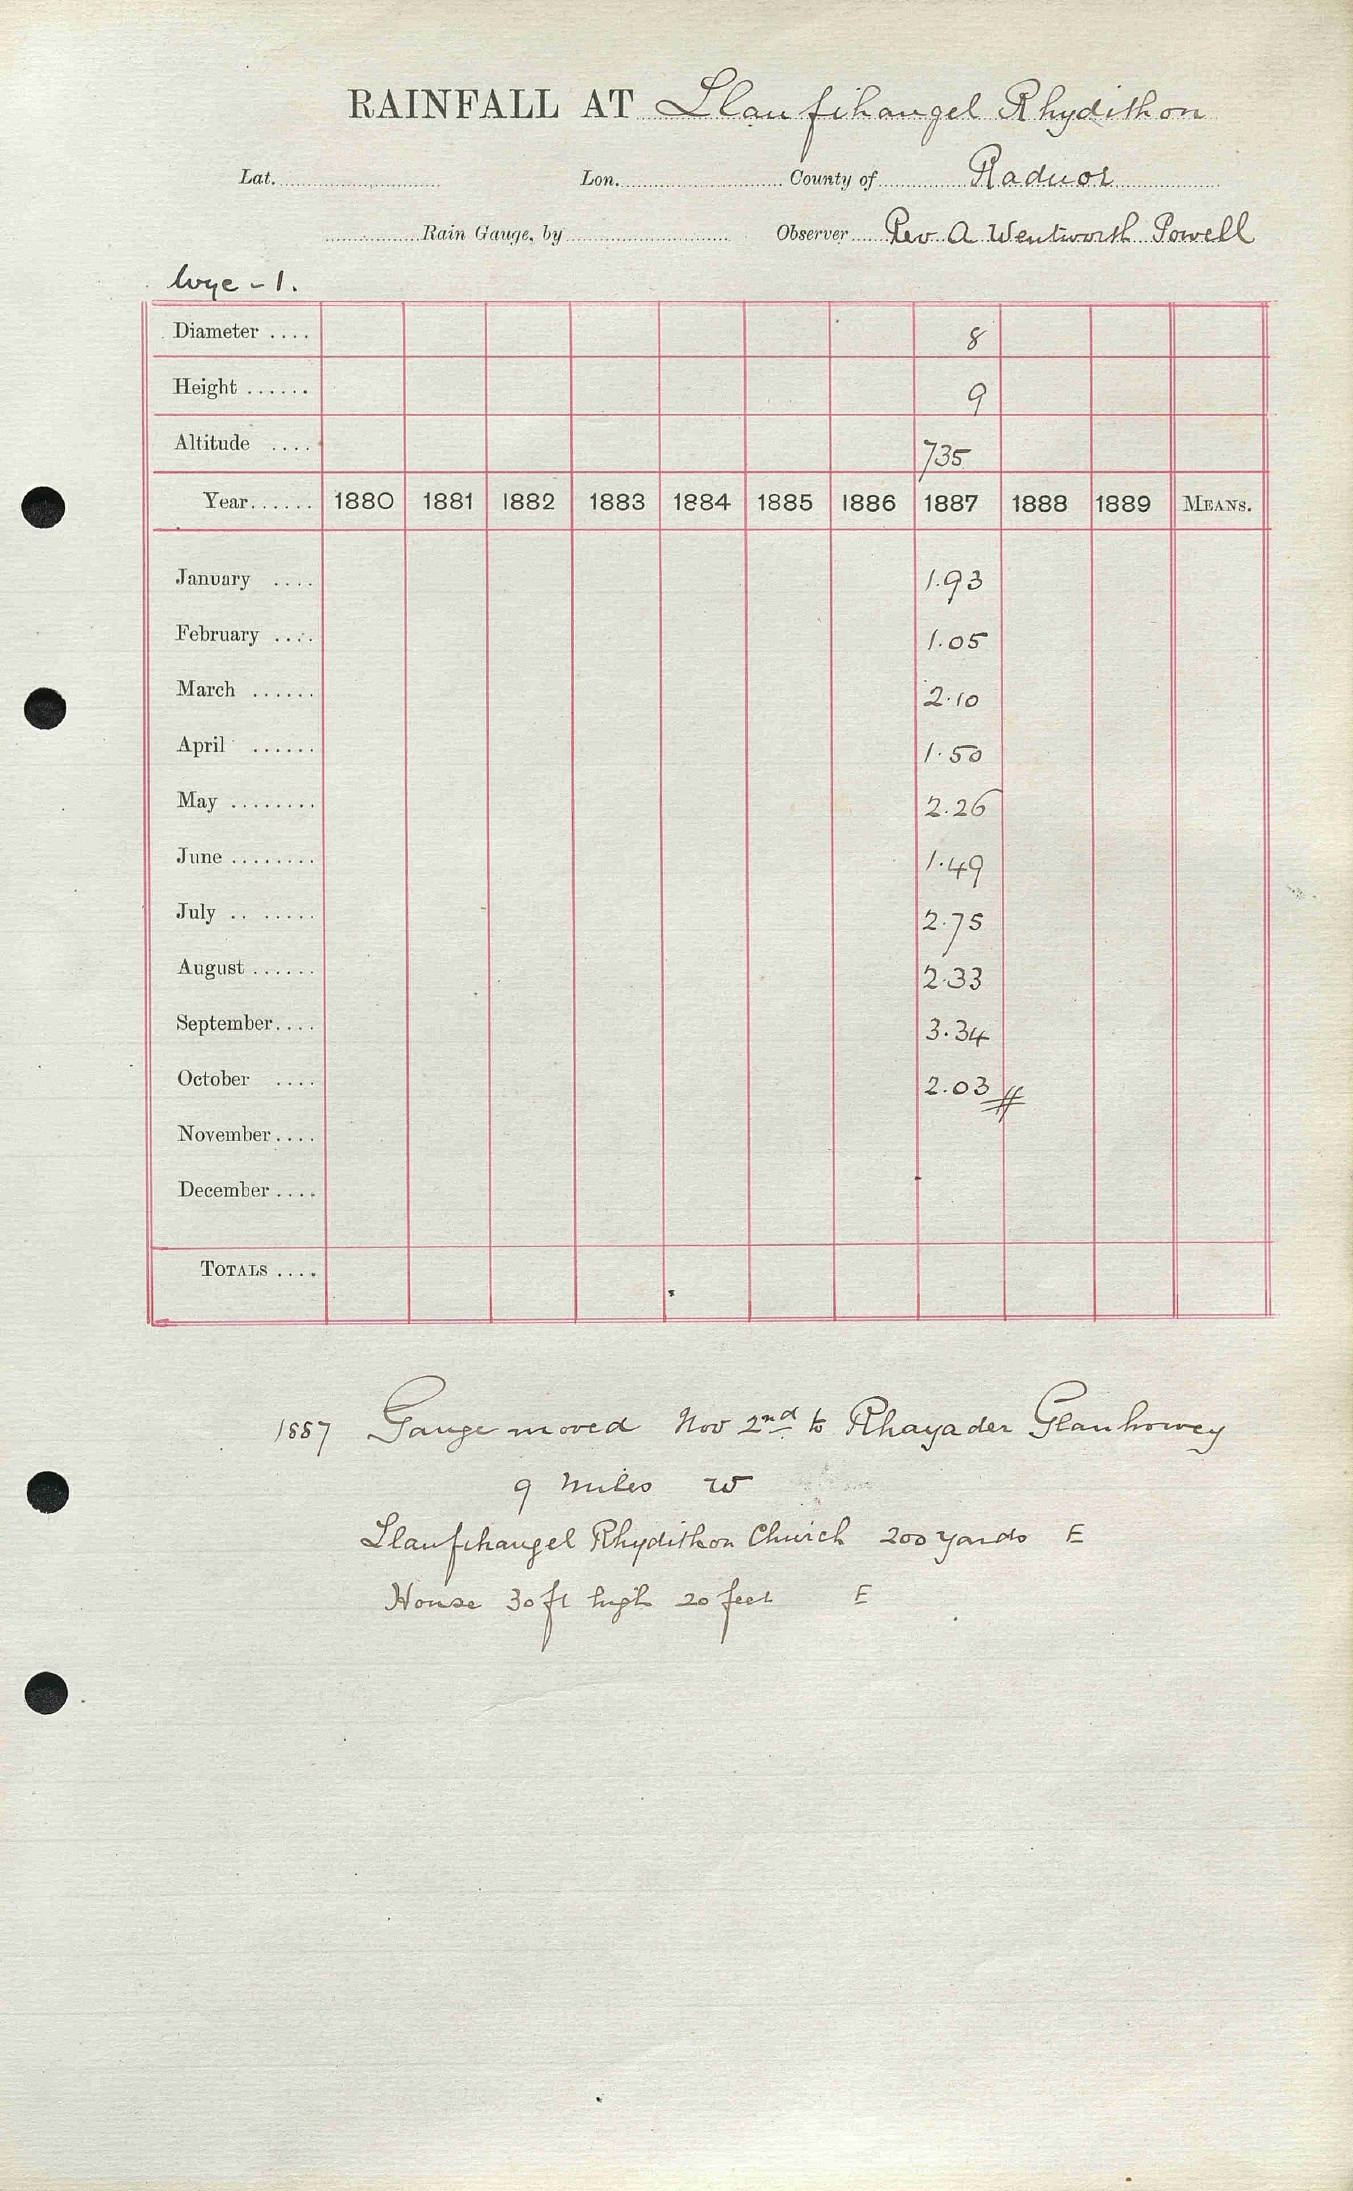 RAINFALL AT Llanfihangel Rhydithon
Lat. Lon. County of Radnor
Rain Gauge, by Observer Rev A Wentworth Powell
Wye - 1.
Diameter .... 8
Height ...... 9
Altitude .... 735
Year...... 1880 1881 1882 1883 1884 1885 1886 1887 1888 1889 MEANS.
January .... 1.93
February .... 1.05
March ...... 2.10
April ...... 1.50
May ........ 2.26
June ........ 1.49
July .. ...... 2.75
August ...... 2.33
September.... 3.34
October .... 2.03 #
November....
December ....
TOTALS ....
1887 Gauge moved Nov 2nd to Rhayader Glanhowey
9 miles W
Llanfihangel Rhydithon Church 200 yards E
House 30 ft high 20 feet E